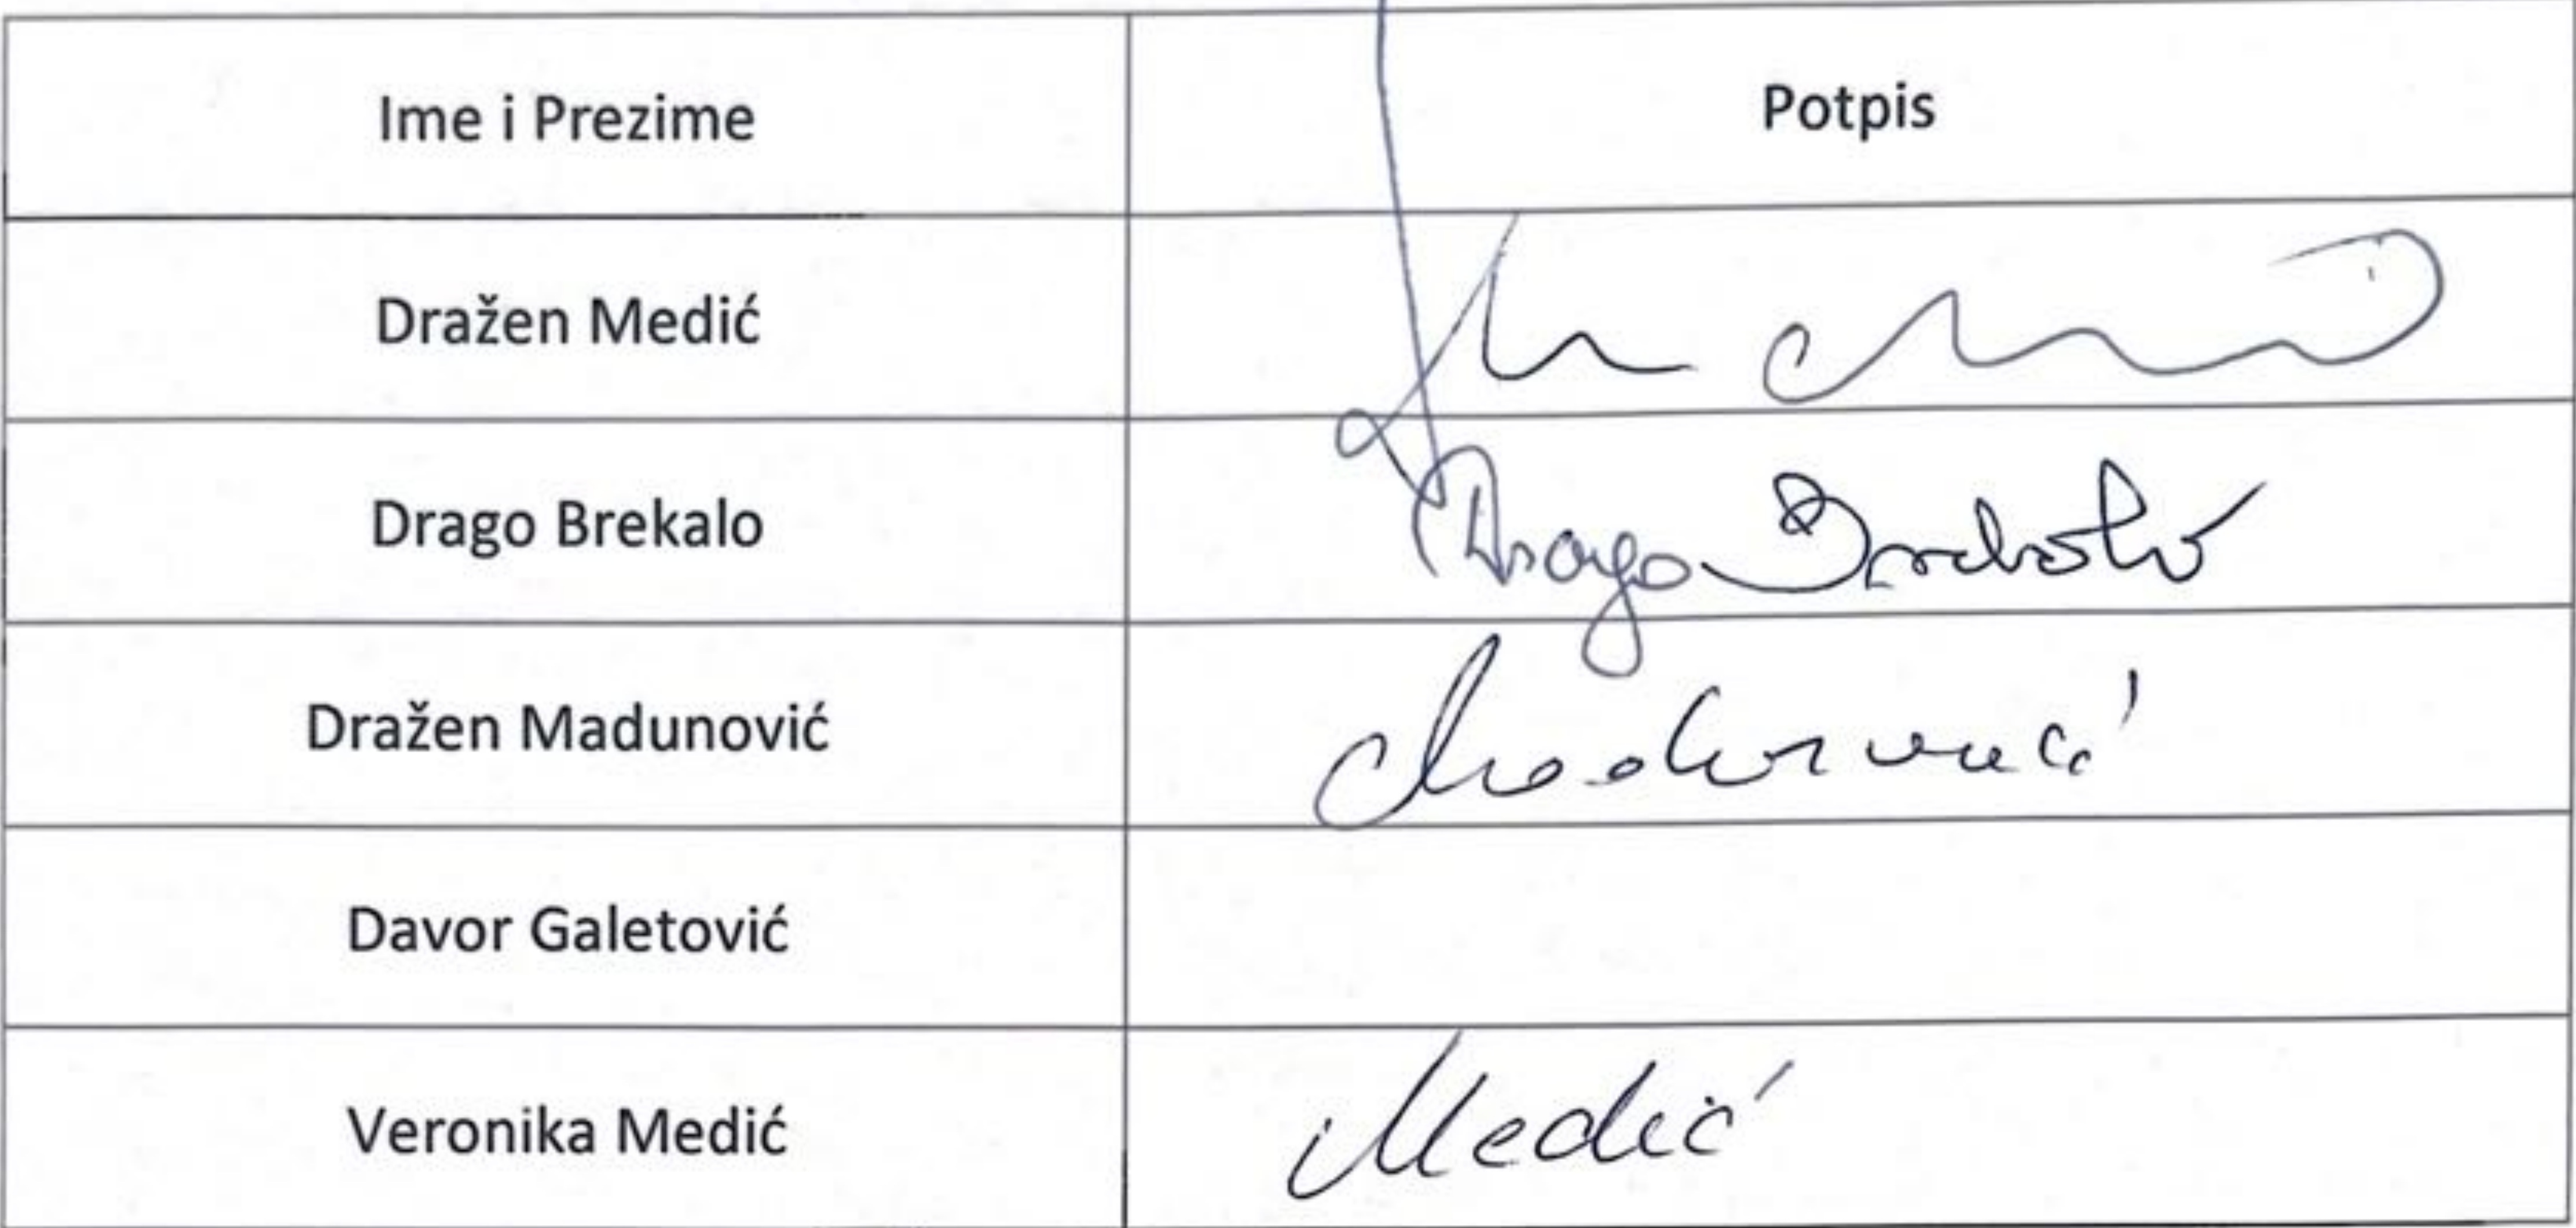 Ime i Prezime Potpis
Dražen Medić
Drago Brekalo Drago Brekalo
Dražen Madunović Madunović
Davor Galetović
Veronika Medić Medić